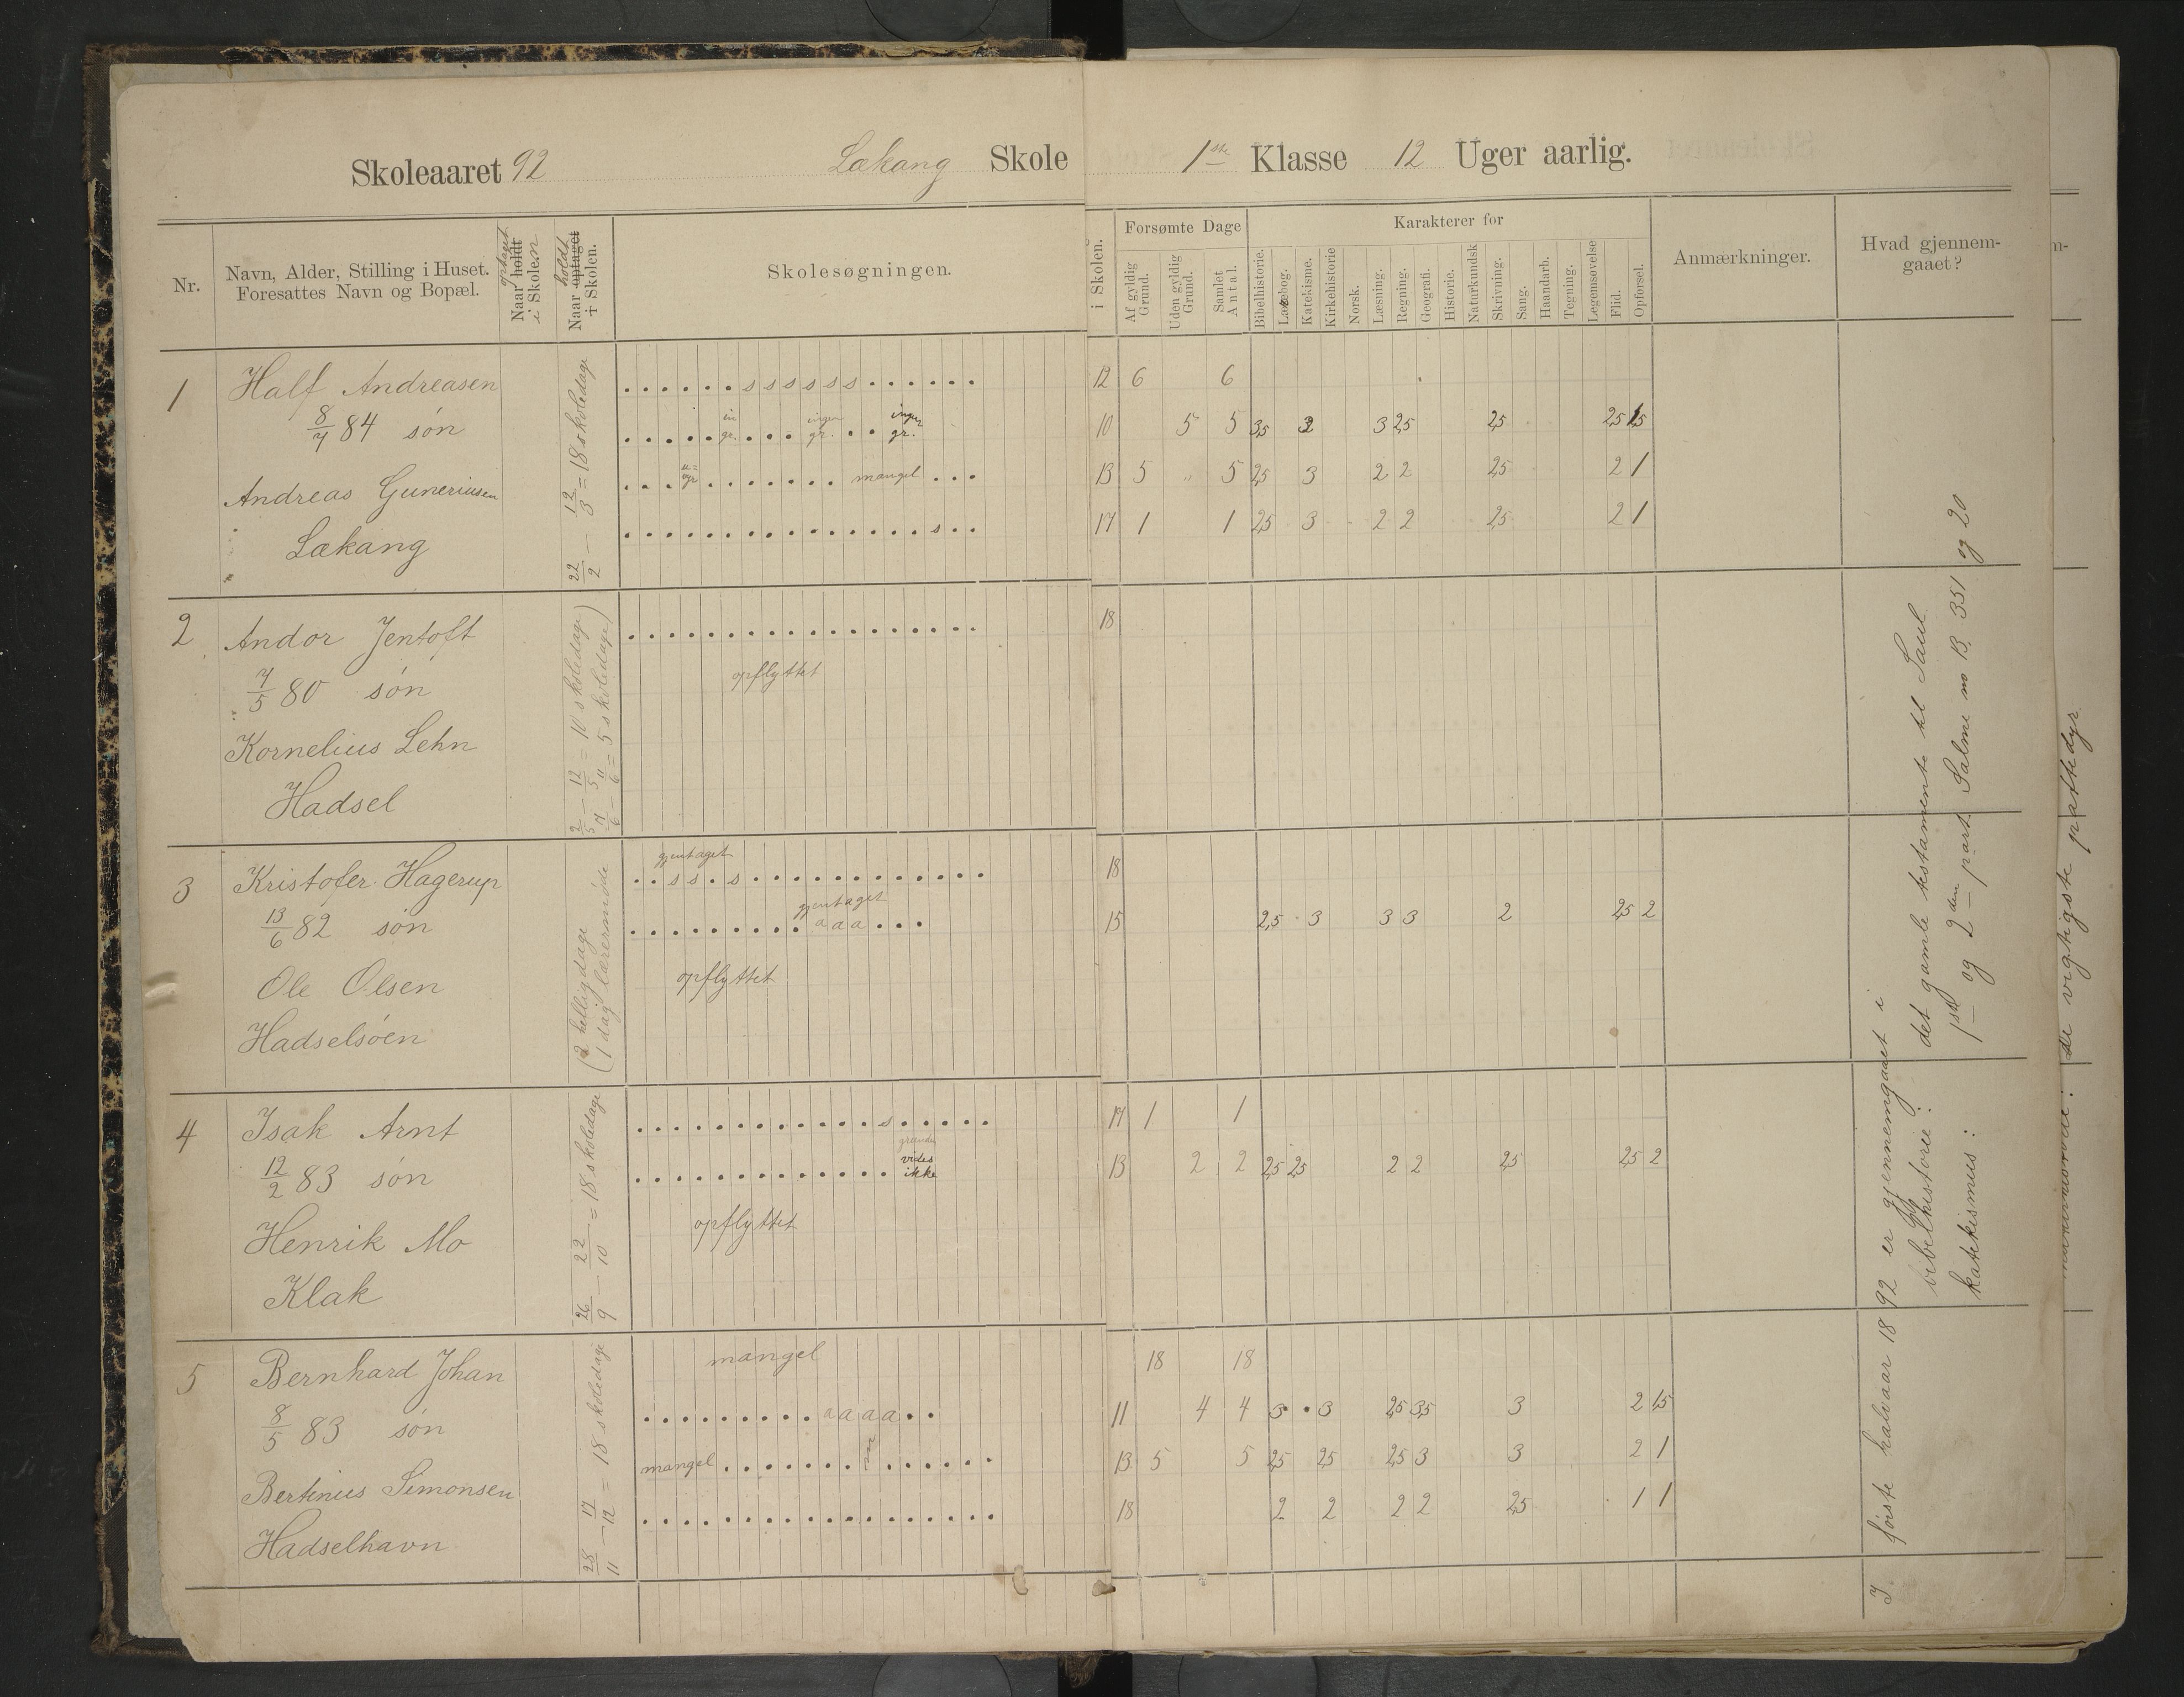 Skoleaaret 92 Lekang Skole 1ste Klasse 12 Uger aarlig.
Nr.
Navn, Alder, Stilling i Huset.
Foresattes Navn og Bopæl.
optaget
Naar holdt
i Skolen
holdt
Naar optaget
i Skolen.
Skolesøgningen.
i Skolen.
Forsømte Dage
Af gyldig Grund.
Uden gyldig Grund.
Samlet Antal.
Karakterer for
Bibelhistorie.
Læsebog.
Katekisme.
Kirkehistorie
Norsk.
Læsning.
Regning.
Geografi.
Historie.
Naturkundsk
Skrivning.
Sang.
Haandarb.
Tegning.
Legemsøvelse
Flid.
Opførsel.
Anmærkninger.
Hvad gjennem-
gaaet?
1 Half Andreasen
8/7 84 søn
Andreas Guneriusen
Lekang
22/2 — 12/3 = 18 skoledage
. . . . . . s s s s s s . . . . . . 12 6 6
. . . . . in gr. . . . ingen gr. . . ingen gr. 10 5 5 3,5 3 3 2,5 2,5 2,5 1,5
. . . u= gr . . . . . . . mangel . . . 13 5 " 5 2,5 3 2 2 2,5 2 1
. . . . . . . . . . . . . . . s . . 17 1 1 2,5 3 2 2 2,5 2 1
2 Andor Jentoft
7/5 80 søn
Kornelius Lehn
Hadsel
2/5 — 12/5 = 10 skoledage)
7/6 — 11/6 = 5 skoledage)
. . . . . . . . . . . . . . . . . . 18
opflyttet
3 Kristofer Hagerup
13/6 82 søn
Ole Olsen
Hadselsøen
(2 helligdage
(1 dag lærermøde
gjentaget
. . s s . s . . . . . . . . . . . . 18
gjentaget
. . . . . . . . . a a a . . . 15 2,5 3 3 3 2 2,5 2
opflyttet
4 Isak Arnt
12/2 83 søn
Henrik Mo
Klak
26/9 — 22/10 = 18 skoledage
. . . . . . . . . . . . s . . . . . 17 1 1
grunden
vides
. . . . . . . . . . . . . ikke 13 2 2 2,5 2,5 2 2 2,5 2,5 2
opflyttet
5 Bernhard Johan
8/5 83 søn
Bertinius Simonsen
Hadselhavn
28/11 — 17/12 = 18 skoledage
mangel 18 18
. . . . . . . . . a a a a . . 11 4 4 3 3 2,5 3,5 3 2 1,5
mangel . . . . . . . . . . . . . 13 5 5 2,5 2,5 2,5 3 3 2 1
. . . . . . . . . . . . . . . . . . 18 2 2 2 2 2,5 1 1
I første halvaar 1892 er gjennemgaaet i
bibelhistorie: det gamle testamente til Saul
katekismus: 1ste og 2den part Salme no B. 351 og 20
de vigtigste pattedyr